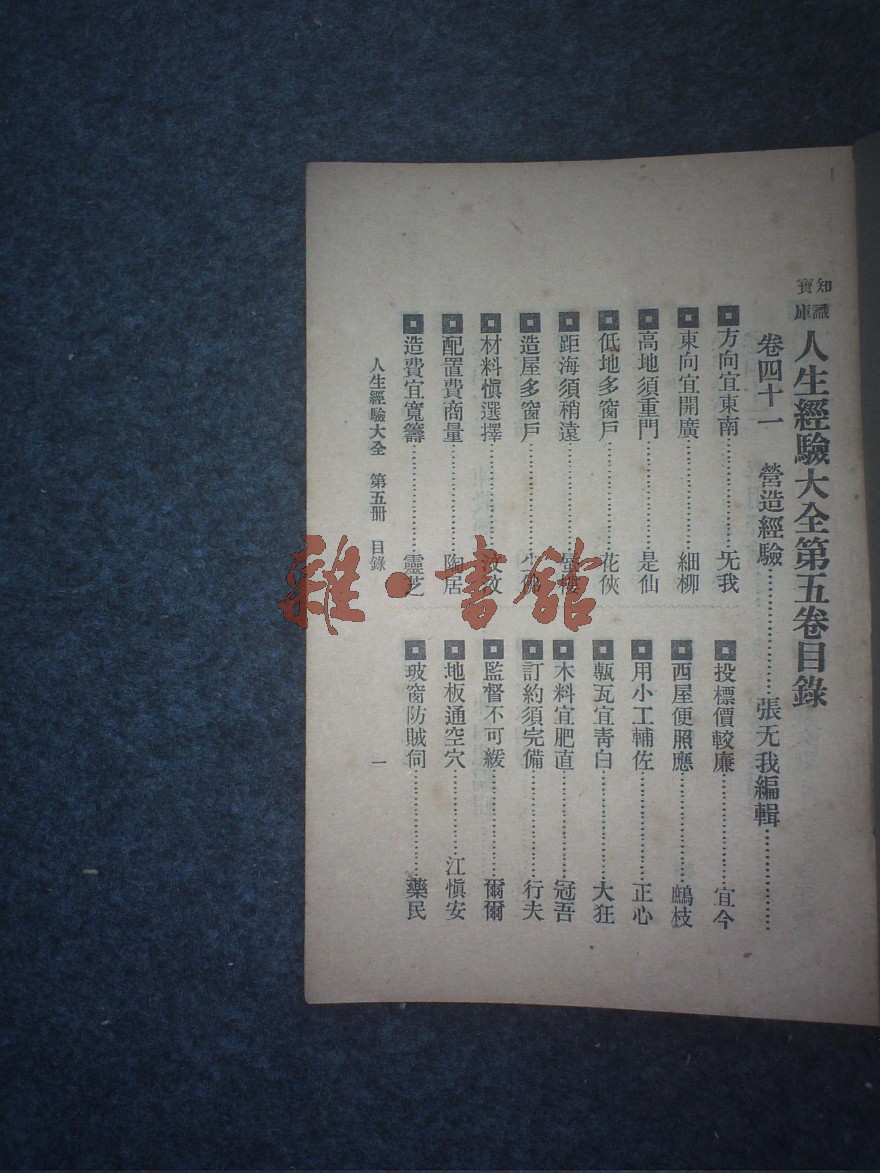 知識寶庫
人生經驗大全第五卷目錄
卷四十一 營造經驗……張无我編輯……
方向宜東南……无我
東向宜開廣……細柳
高地須重門……是仙
低地多窗戶……花俠
距海須稍遠……蜃樓
造屋多窗戶……
材料愼選擇……
配置費商量……陶居
造費宜寬籌……靈芝
投標價較廉……宜今
西屋便照應……鷓枝
用小工輔佐……正心
甎瓦宜靑白……大狂
木料宜肥直……冠吾
訂約須完備……行夫
監督不可緩……爾爾
地板通空穴……江愼安
玻窗防賊伺……藥民
人生經驗大全 第五册 目錄 一
雜·書館